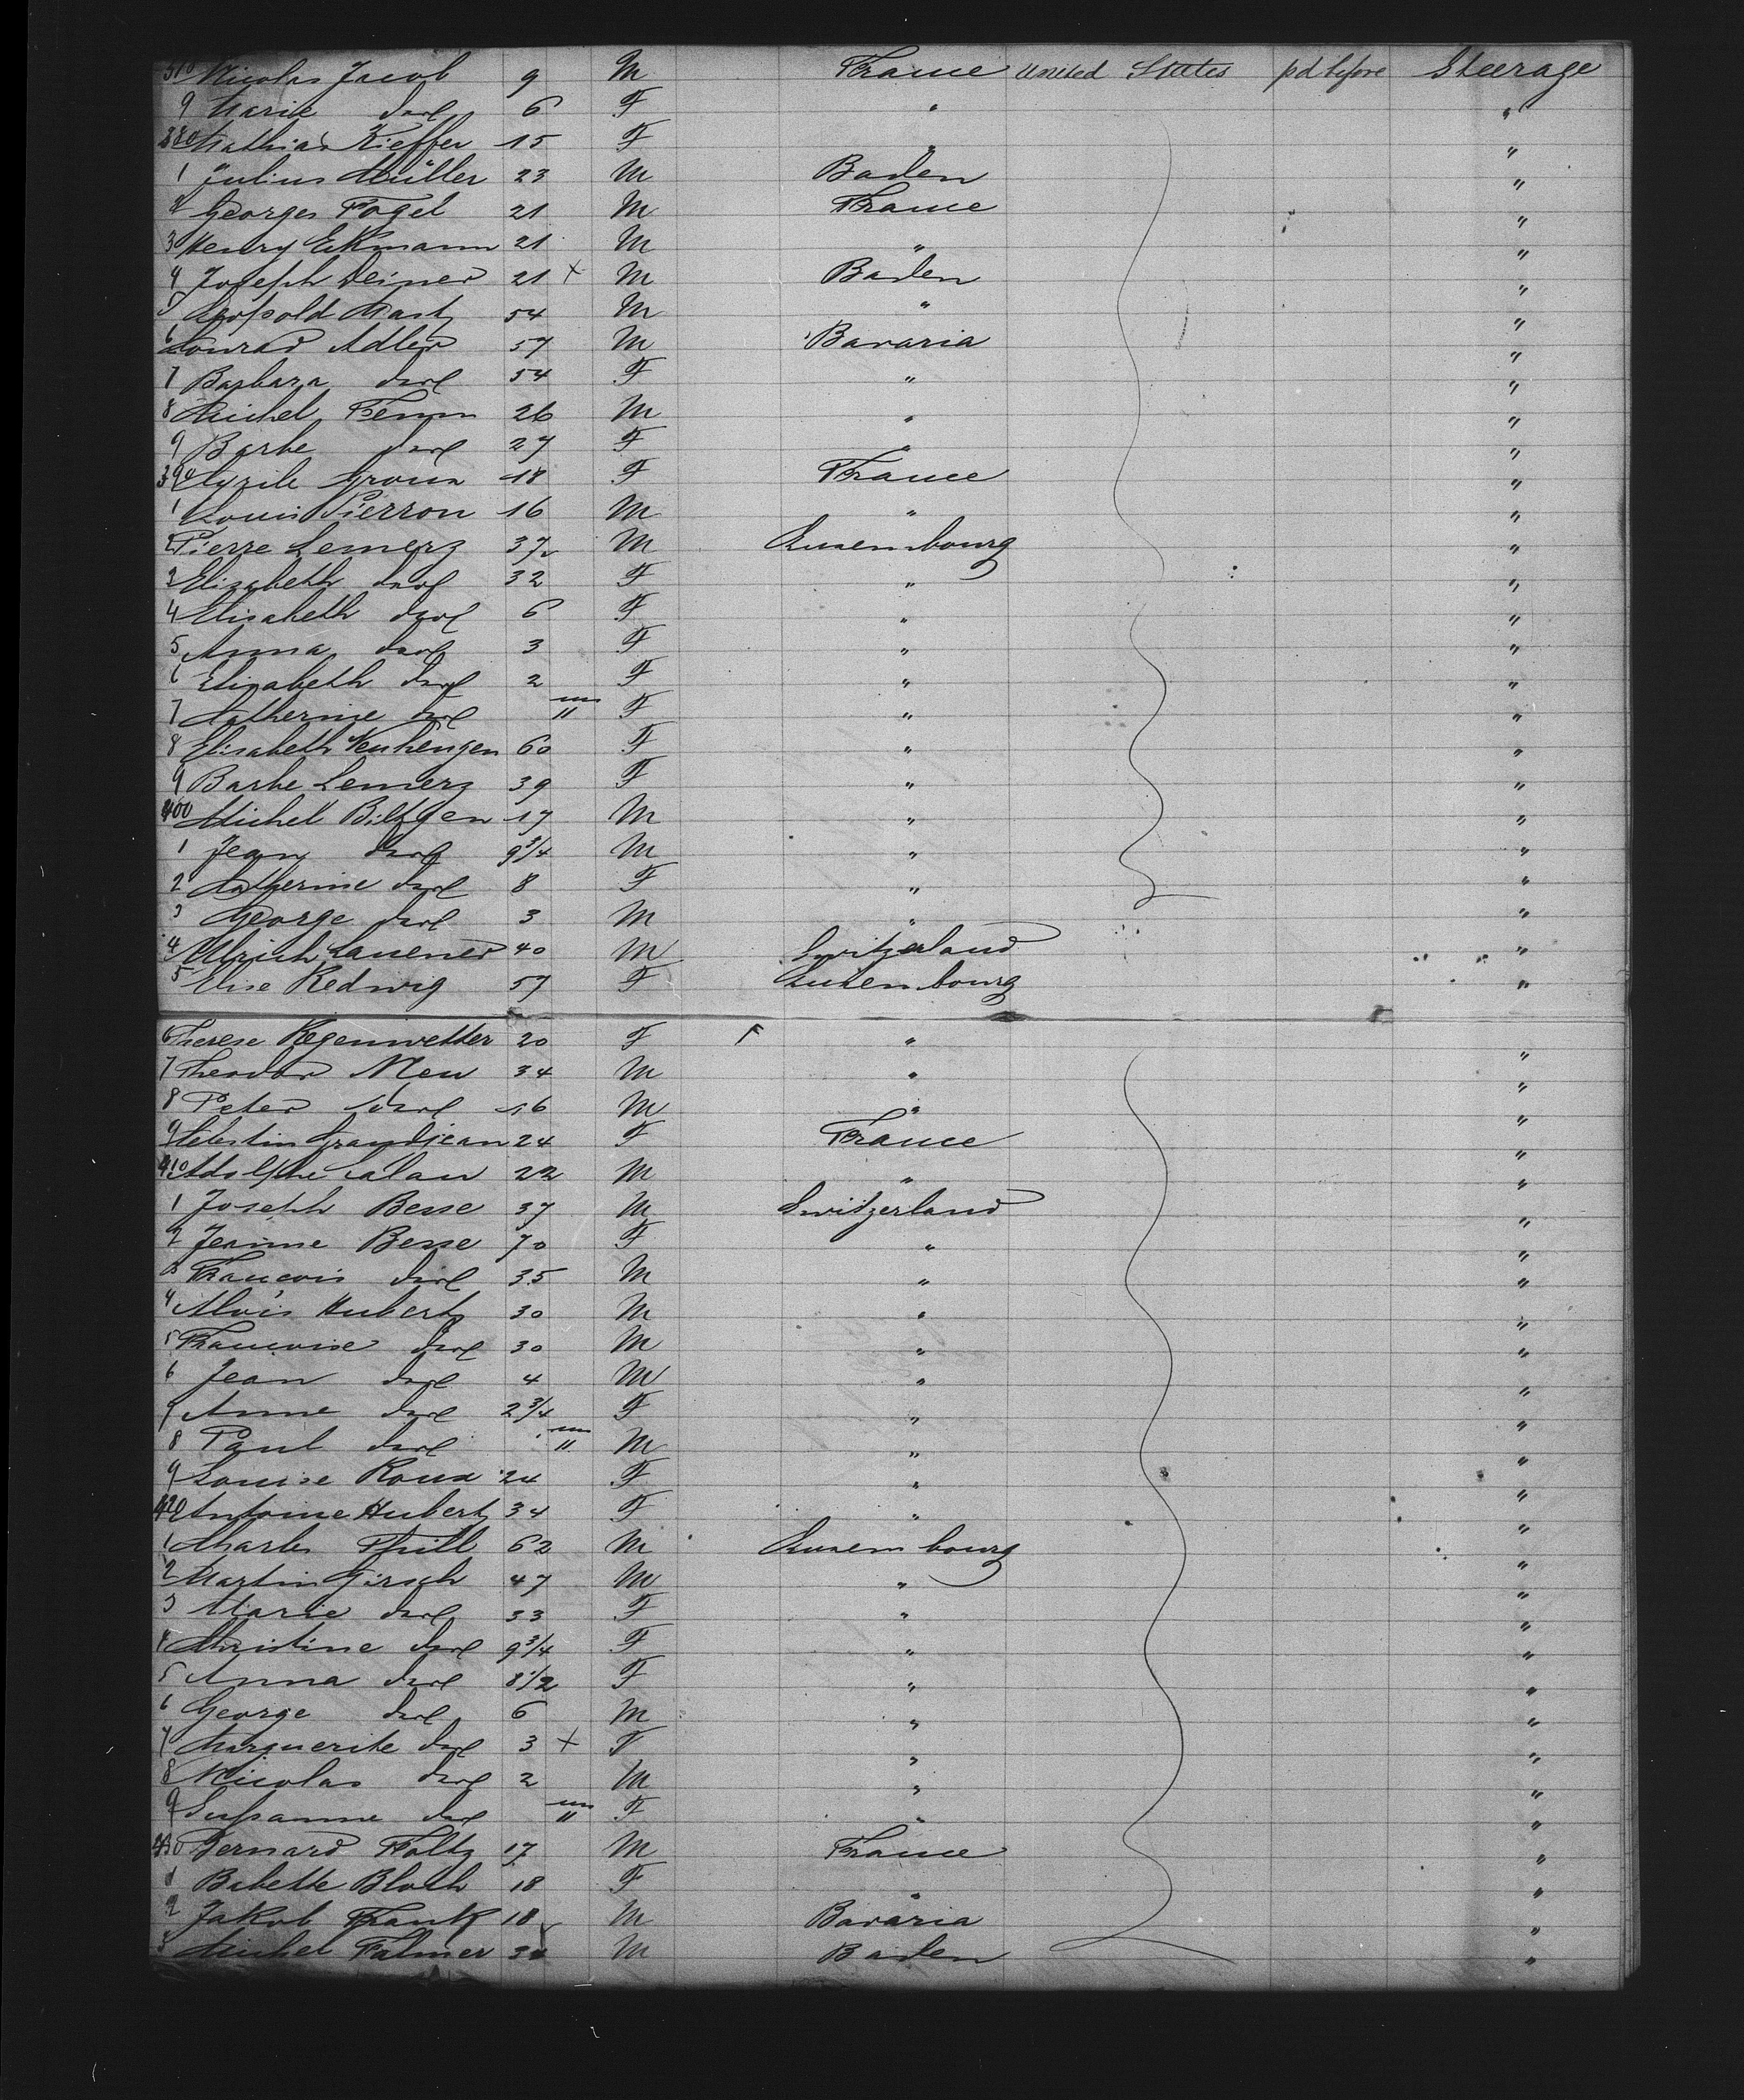 Nicolas Jacob 9 M France United States pd before Steerage
9 Marie do 6 F " "
380 Mathias Kieffer 15 F " "
1 Julius Müller 23 M Baden "
2 Georges Fogel 21 M France "
3 Henry Eckmann 21 M " "
4 Joseph 21 + M Baden "
5 Leopold 54 M " "
6 Conrad Adler 57 M Bavaria "
7 Barbara do 54 F " "
8 Michel 26 M " "
9 Barbe do 27 F " "
390 18 F France "
1 Louis Pierron 16 M " "
2 Pierre Lemerz 37 M Luxembourg "
3 Elizabeth do 32 F " "
4 Elisabeth do 6 F " "
5 Anna do 3 F " "
6 Elizabeth do 2 F " "
7 Catherine do " F " "
8 Elisabeth 60 F " "
9 Barbe Lemerz 39 F " "
400 Michel Biltgen 17 M " "
1 Jean do 9 3/4 M " "
2 Catherine do 8 F " "
3 George do 3 M " "
4 Ulrich Lauener 40 M Switzerland "
5 Elise Redwig 57 F Luxembourg "
6 Therese Regenwetter 20 F F " "
7 Theodor Meu 34 M " "
8 Peter do 16 M " "
9 Celestin Grandjean 24 F France "
410 Adolphe Calau 22 M " "
1 Joseph Besse 37 M Switzerland "
2 Jeanne Besse 70 F " "
3 François do 35 M " "
4 Alois Hubertz 30 M " "
5 Francoise do 30 M " "
6 Jean do 4 M " "
7 Anne do 2 3/4 F " "
8 Paul do " M " "
9 Louise Roux 24 F " "
420 Antoine Hubertz 34 F " "
1 Charles Thill 62 M Luxembourg "
2 Martin Girsch 47 M " "
3 Marie do 33 F " "
4 Christine do 9 3/4 F " "
5 Anna do 8 1/2 F " "
6 George do 6 M " "
7 Marguerite do 3 + F " "
8 Nicolas do 2 M " "
9 Susanne do " F " "
430 Bernard Foltz 17 M France "
1 Babette Bloch 18 F " "
2 Jakob Frank 18 M Bavaria "
3 Michel Falmer 34 M Baden "